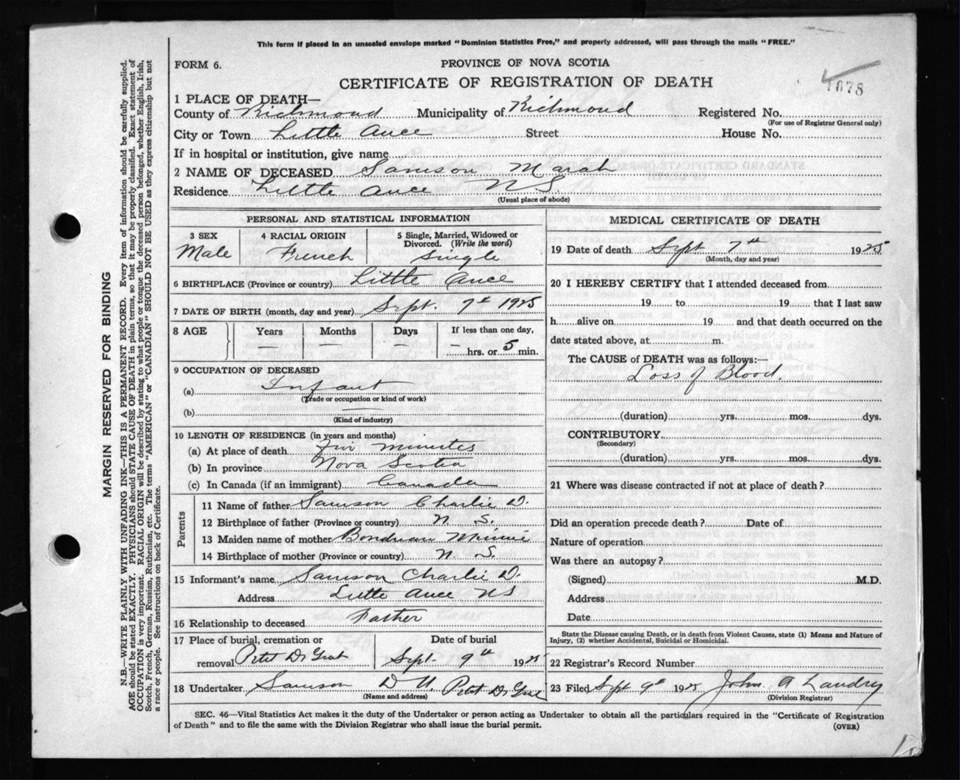 This form if placed in an unsealed envelope marked "Dominion Statistics Free," and properly addressed, will pass through the mails "FREE."
FORM 6.
PROVINCE OF NOVA SCOTIA
CERTIFICATE OF REGISTRATION OF DEATH
1078
1 PLACE OF DEATH—
County of Richmond Municipality of Richmond Registered No.
(For use of Registrar General only)
City or Town Little Ance Street House No.
If in hospital or institution, give name
2 NAME OF DECEASED Samson Marah
Residence Little Ance N S
(Usual place of abode)
PERSONAL AND STATISTICAL INFORMATION
3 SEX
Male
4 RACIAL ORIGIN
French
5 Single, Married, Widowed or
Divorced. (Write the word)
Single
6 BIRTHPLACE (Province or country) Little Ance
7 DATE OF BIRTH (month, day and year) Sept. 7th 1925
8 AGE
Years
—
Months
—
Days
—
If less than one day,
— hrs. or 5 min.
9 OCCUPATION OF DECEASED
(a) Infant
(Trade or occupation or kind of work)
(b) —
(Kind of industry)
10 LENGTH OF RESIDENCE (in years and months)
(a) At place of death Five minutes
(b) In province Nova Scotia
(c) In Canada (if an immigrant) Canada
Parents
11 Name of father Samson Charlie D.
12 Birthplace of father (Province or country) N. S.
13 Maiden name of mother Minnie
14 Birthplace of mother (Province or country) N. S.
15 Informant's name Samson Charlie D.
Address Little Ance NS
16 Relationship to deceased Father
17 Place of burial, cremation or
removal Petit De Grat
Date of burial
Sept. 9th 1925
18 Undertaker Samson D U. Petit De Grat
(Name and address)
MEDICAL CERTIFICATE OF DEATH
19 Date of death Sept 7th 1925
(Month, day and year)
20 I HEREBY CERTIFY that I attended deceased from
19 to 19 that I last saw
h alive on 19 and that death occurred on the
date stated above, at m.
The CAUSE of DEATH was as follows:—
Loss of Blood.
(duration) yrs. mos. dys.
CONTRIBUTORY
(Secondary)
(duration) yrs. mos. dys.
21 Where was disease contracted if not at place of death?
Did an operation precede death? Date of
Nature of operation
Was there an autopsy?
(Signed) M.D.
Address
Date
State the Disease causing Death, or in death from Violent Causes, state (1) Means and Nature of
Injury, (2) whether Accidental, Suicidal or Homicidal.
22 Registrar's Record Number
23 Filed Sept 9th 1925 John A Landry
(Division Registrar)
SEC. 46—Vital Statistics Act makes it the duty of the Undertaker or person acting as Undertaker to obtain all the particulars required in the "Certificate of Registration
of Death" and to file the same with the Division Registrar who shall issue the burial permit.
(OVER)
MARGIN RESERVED FOR BINDING
N.B.—WRITE PLAINLY WITH UNFADING INK—THIS IS A PERMANENT RECORD. Every item of information should be carefully supplied.
AGE should be stated EXACTLY. PHYSICIANS should STATE CAUSE OF DEATH in plain terms, so that it may be properly classified. Exact statement of
OCCUPATION is very important. RACIAL ORIGIN will be described by stating to what people or tongue the deceased person belonged, whether English, Irish,
Scotch, French, German, Russian, Ruthenian, etc. The terms "AMERICAN" or "CANADIAN" SHOULD NOT BE USED as they express citizenship but not
a race or people. See instructions on back of Certificate.